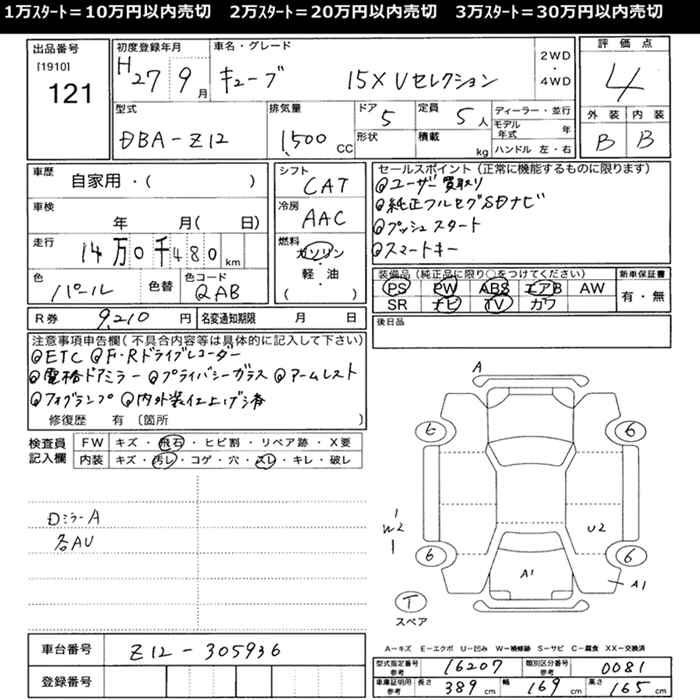 1万ｽﾀｰﾄ＝10万円以内売切　2万ｽﾀｰﾄ＝20万円以内売切　3万ｽﾀｰﾄ＝30万円以内売切
出品番号
[1910]
121
初度登録年月
H27 9月
車名・グレード
キューブ 15X Vセレクション
2WD
・
4WD
評価点
4
型式
DBA-Z12
排気量
1,500 CC
ドア
5
形状
定員
5人
積載
kg
ディーラー・並行
モデル年式 年
ハンドル 左・右
外装 内装
B B
車歴
自家用・( )
車検
年 月( 日)
走行
14万0千480km
色
パール
色替
色コード
QAB
シフト
CAT
冷房
AAC
燃料
ガソリン
・
軽・油
( )
セールスポイント (正常に機能するものに限ります)
◎ユーザー買取り
◎純正フルセグSDナビ
◎プッシュスタート
◎スマートキー
装備品 (純正品に限り○をつけてください)
PS PW ABS エアB AW
SR ナビ TV カワ
新車保証書
有・無
R券 9,210 円
名変通知期限 月 日
後日品
注意事項申告欄 (不具合内容等は具体的に記入して下さい)
◎ETC ◎F・Rドライブレコーダー
◎電格ドアミラー ◎プライバシーガラス ◎アームレスト
◎フォグランプ ◎内外装仕上げ済
修復歴 有 〔箇所 〕
検査員
記入欄
FW キズ・飛石・ヒビ割・リペア跡・X要
内装 キズ・汚レ・コゲ・穴・スレ・キレ・破レ
DミラーA
各AU
A
6
6
W2
U2
6
6
A1
A1
T
スペア
A－キズ E－エクボ U－凹み W－補修跡 S－サビ C－腐食 XX－交換済
車台番号 Z12-305936
登録番号
型式指定番号
参考
16207
類別区分番号
参考
0081
車庫証明用
参考
長さ 389 cm 幅 169 cm 高さ 165 cm